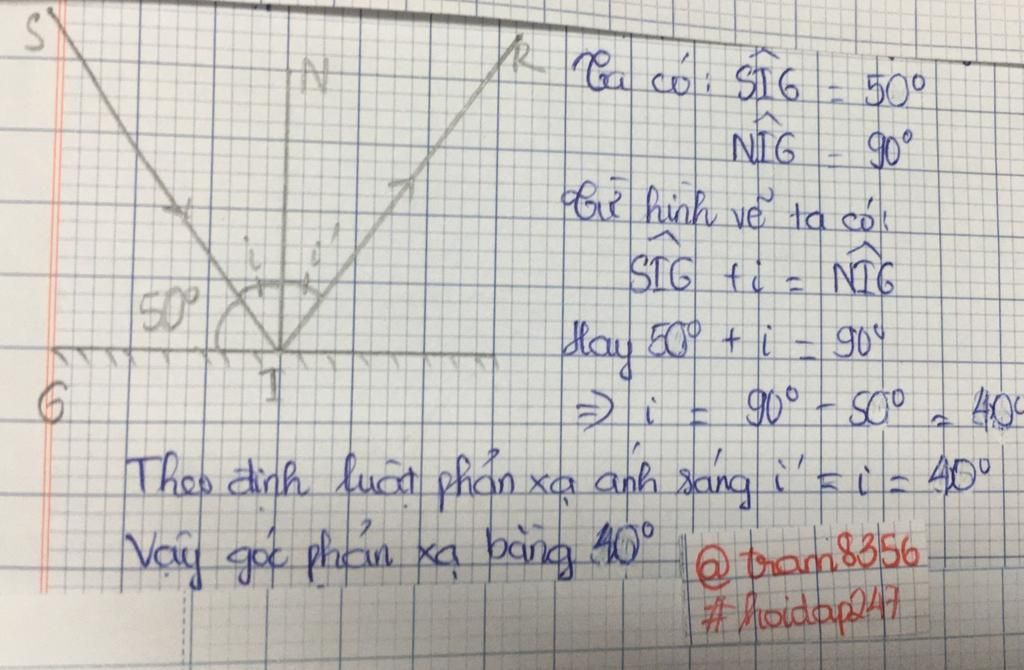 S
N
R
i
i'
50°
G
I
Ta có: SÎG = 50°
NÎG = 90°
Từ hình vẽ ta có:
SÎG + i = NÎG
Hay 50° + i = 90°
=> i = 90° - 50° = 40°
Theo định luật phản xạ ánh sáng i' = i = 40°
Vậy góc phản xạ bằng 40°
@tram8356
#hoidap247